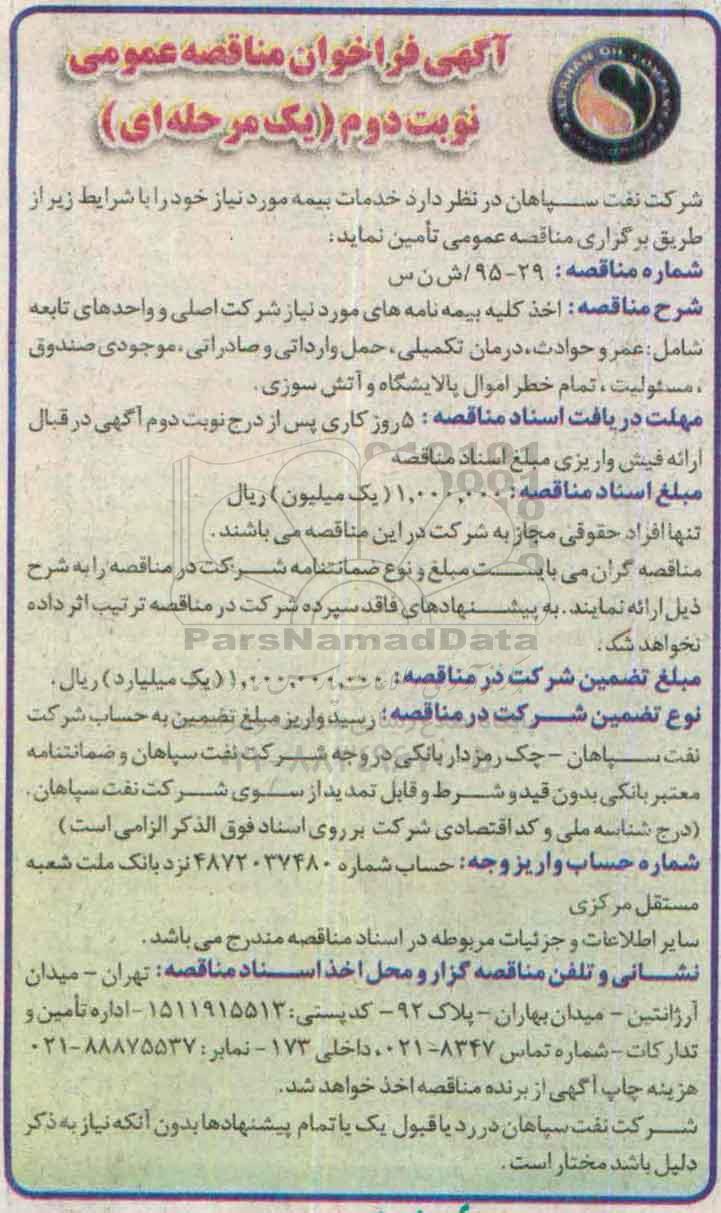 SEPAHAN OIL COMPANY
آگهی فراخوان مناقصه عمومی
نوبت دوم (یک مرحله ای)
شرکت نفت سپاهان در نظر دارد خدمات بیمه مورد نیاز خود را با شرایط زیر از
طریق برگزاری مناقصه عمومی تأمین نماید:
شماره مناقصه: ۲۹-۹۵/ش ن س
شرح مناقصه: اخذ کلیه بیمه نامه های مورد نیاز شرکت اصلی و واحدهای تابعه
شامل: عمر و حوادث، درمان تکمیلی، حمل وارداتی و صادراتی، موجودی صندوق
، مسئولیت، تمام خطر اموال پالایشگاه و آتش سوزی.
مهلت دریافت اسناد مناقصه: ۵ روز کاری پس از درج نوبت دوم آگهی در قبال
ارائه فیش واریزی مبلغ اسناد مناقصه
مبلغ اسناد مناقصه: ۱,۰۰۰,۰۰۰ (یک میلیون) ریال
تنها افراد حقوقی مجاز به شرکت در این مناقصه می باشند.
مناقصه گران می بایست مبلغ و نوع ضمانتنامه شرکت در مناقصه را به شرح
ذیل ارائه نمایند. به پیشنهادهای فاقد سپرده شرکت در مناقصه ترتیب اثر داده
نخواهد شد.
ParsNamadData
مبلغ تضمین شرکت در مناقصه: ۱,۰۰۰,۰۰۰,۰۰۰ (یک میلیارد) ریال.
نوع تضمین شرکت در مناقصه: رسید واریز مبلغ تضمین به حساب شرکت
نفت سپاهان - چک رمزدار بانکی در وجه شرکت نفت سپاهان و ضمانتنامه
معتبر بانکی بدون قید و شرط و قابل تمدید از سوی شرکت نفت سپاهان.
(درج شناسه ملی و کد اقتصادی شرکت بر روی اسناد فوق الذکر الزامی است)
شماره حساب واریز وجه: حساب شماره ۴۸۷۲۰۳۷۴۸۰ نزد بانک ملت شعبه
مستقل مرکزی
سایر اطلاعات و جزئیات مربوطه در اسناد مناقصه مندرج می باشد.
نشانی و تلفن مناقصه گزار و محل اخذ اسناد مناقصه: تهران - میدان
آرژانتین - میدان بهاران - پلاک ۹۲ - کدپستی: ۱۵۱۱۹۱۵۵۱۳ - اداره تأمین و
تدارکات - شماره تماس ۸۳۴۷-۰۲۱، داخلی ۱۷۳ - نمابر: ۸۸۸۷۵۵۳۷-۰۲۱
هزینه چاپ آگهی از برنده مناقصه اخذ خواهد شد.
شرکت نفت سپاهان در رد یا قبول یک یا تمام پیشنهادها بدون آنکه نیاز به ذکر
دلیل باشد مختار است.